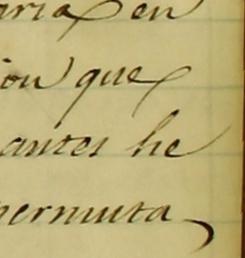 aria en
ion que
antes he
permuta